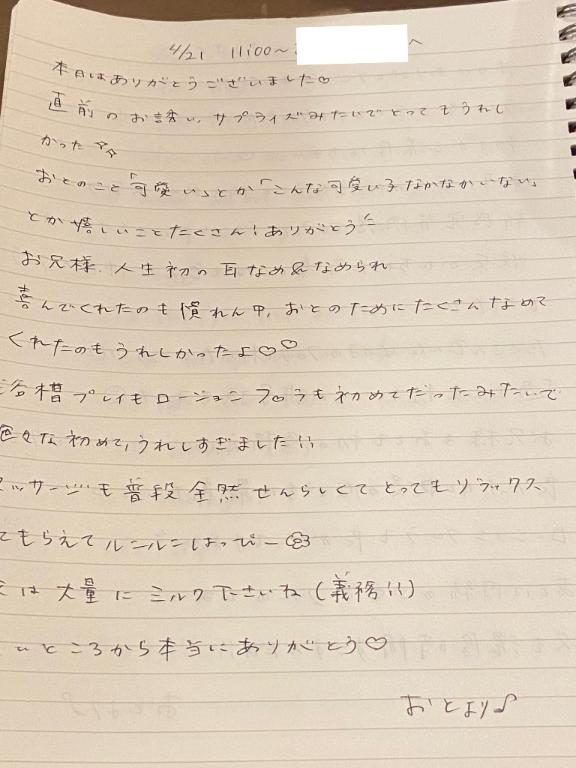 4/21 11:00~ へ
本日はありがとうございました♡
直前のお誘い、サプライズみたいでとってもうれし
かった☆☆
おとのこと「可愛い」とか「こんな可愛い子なかなかいない」
とか嬉しいことたくさん!ありがとう
お兄様、人生初の耳なめ&なめられ
喜んでくれたのも慣れん中、おとのためにたくさんなめて
くれたのもうれしかったよ♡♡
浴槽プレイもローションプロうも初めてだったみたいで
色々な初めて、うれしすぎました!!
マッサージも普段全然せんらしくてとってもリラックス
てもらえてルンルンはっぴー
は大量にミルク下さいね(義務!!)
いところから本当にありがとう♡
おとより♪